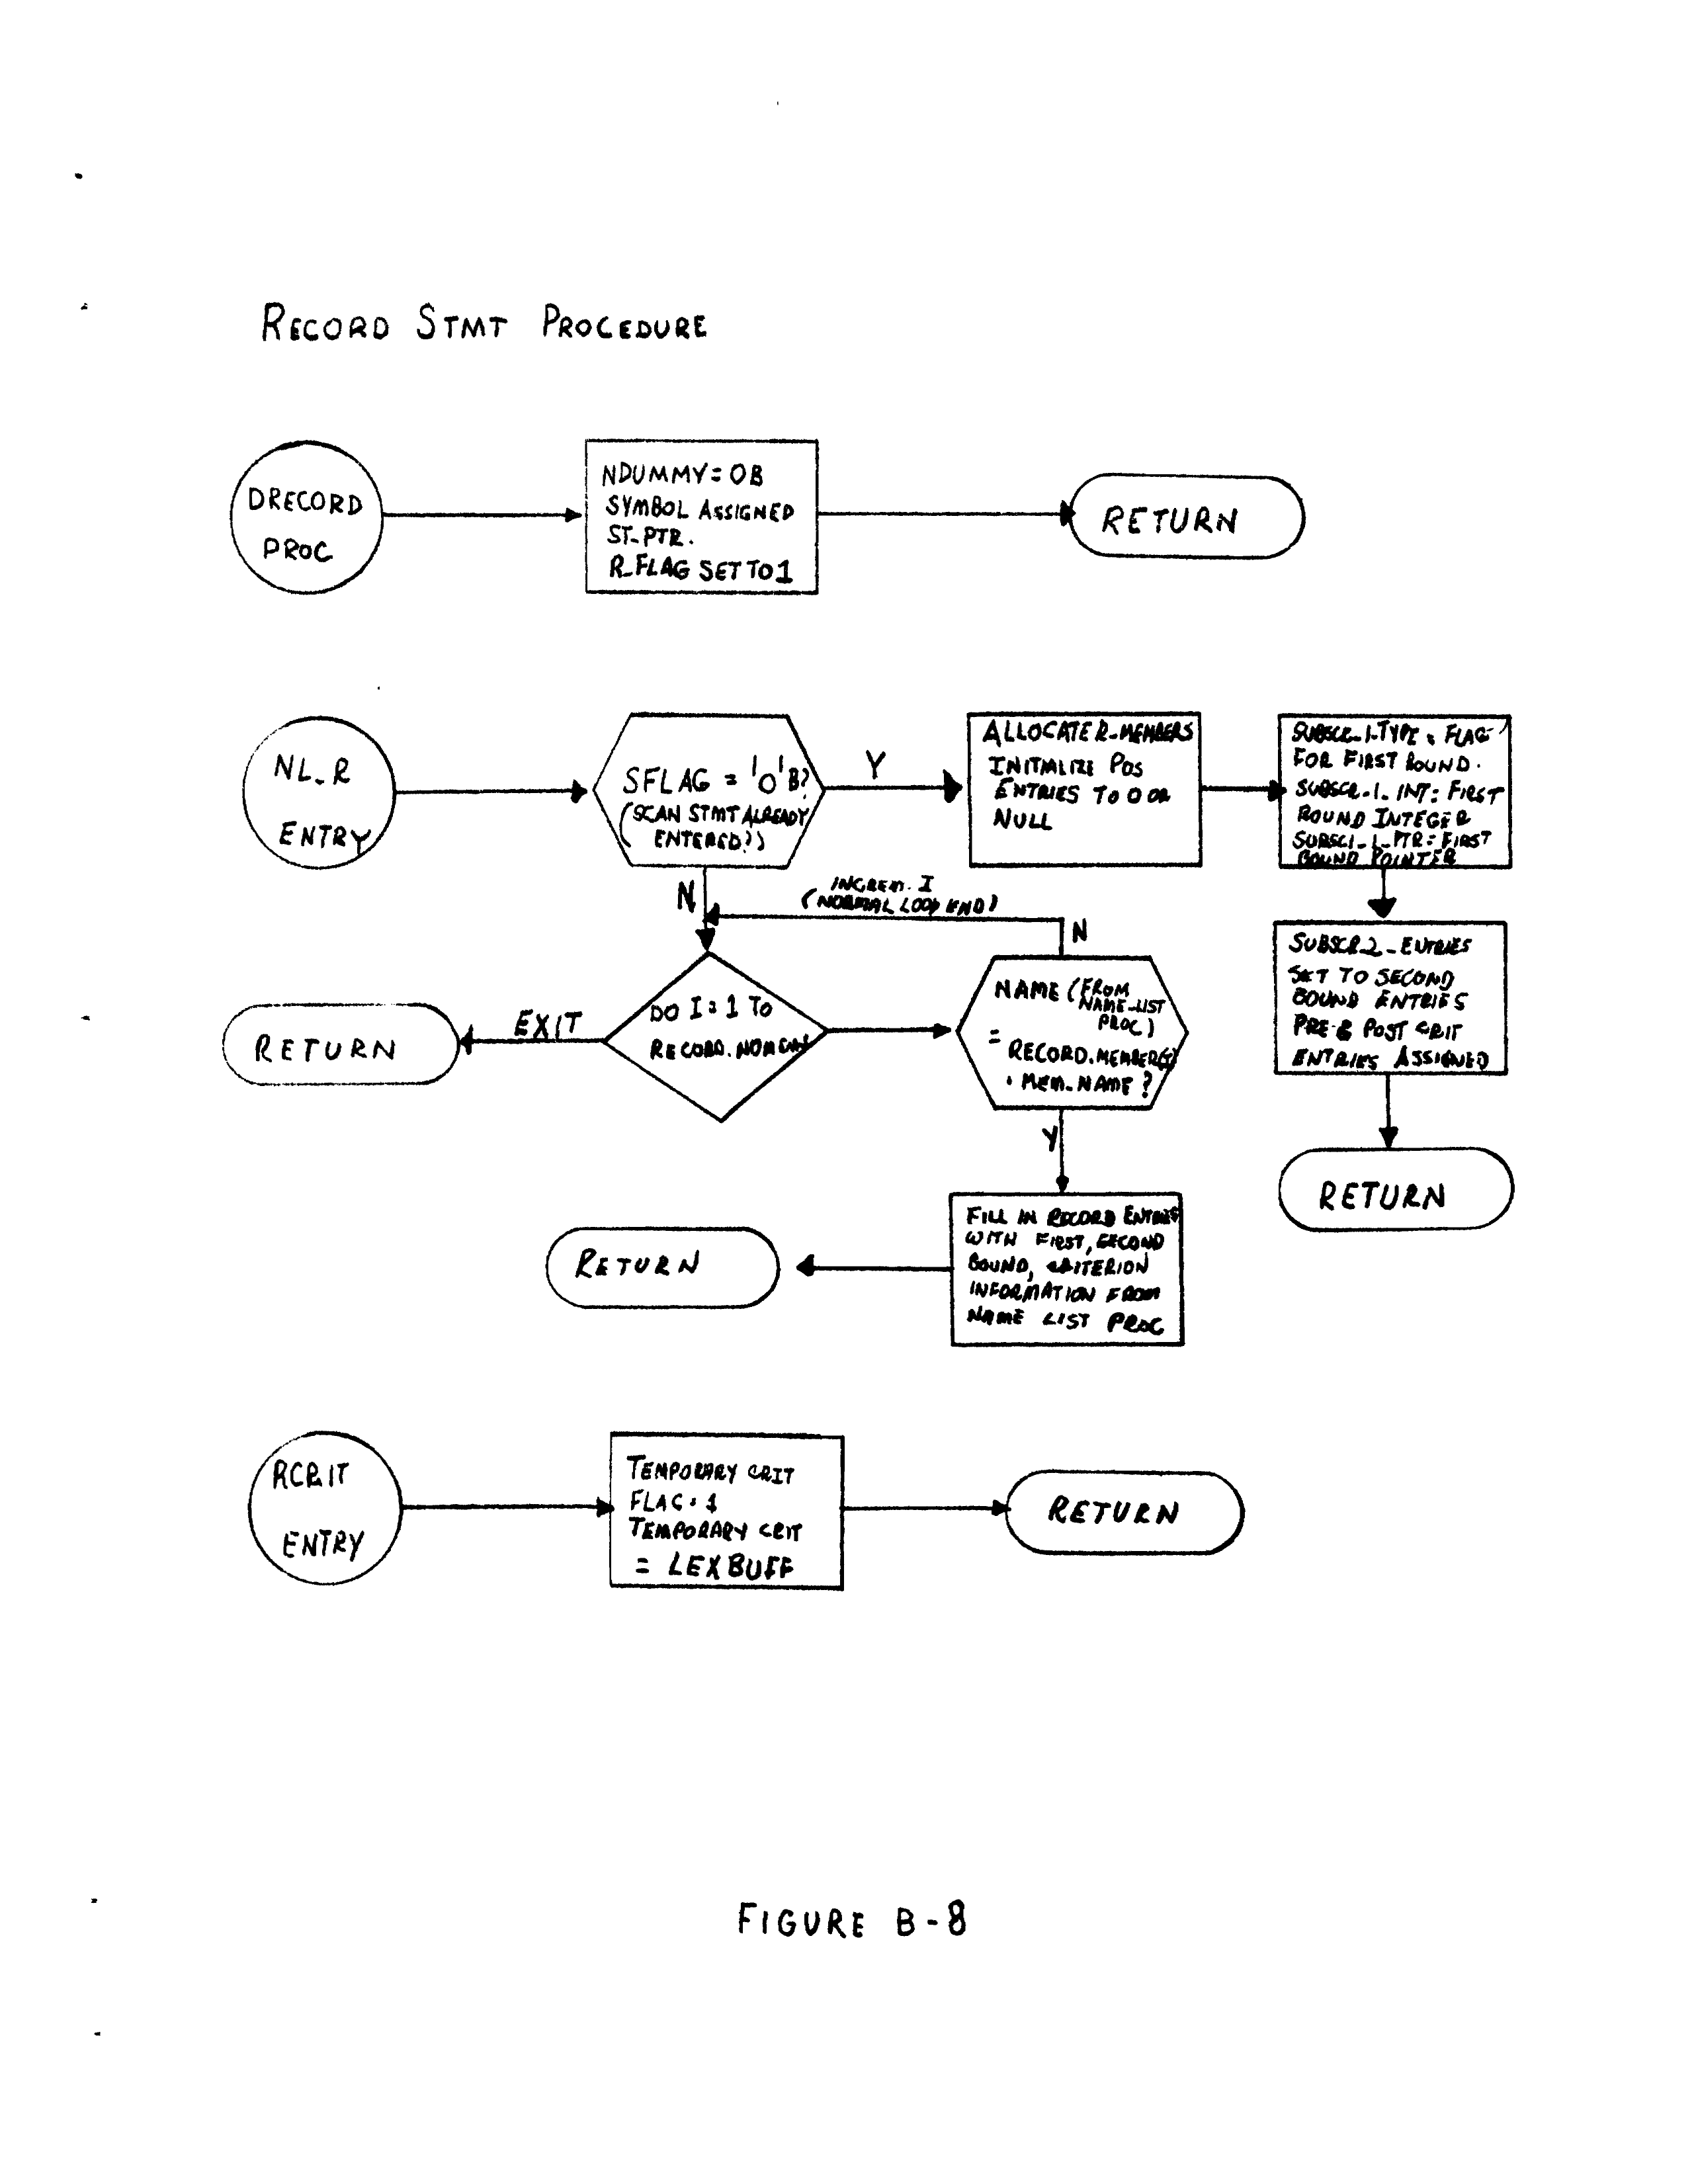 RECORD STMT PROCEDURE
DRECORD
PROC
NDUMMY=0B
SYMBOL ASSIGNED
ST_PTR.
R_FLAG SET TO 1
RETURN
NL_R
ENTRY
SFLAG = '0'B?
(SCAN STMT ALREADY
ENTERED?)
Y
ALLOCATE R_MEMBERS
INITIALIZE POS
ENTRIES TO 0 OR
NULL
SUBSCR_1_TYPE = FLAG
FOR FIRST BOUND.
SUBSCR_1_INT = FIRST
BOUND INTEGER
SUBSCR_1_PTR = FIRST
BOUND POINTER
N
INCREM. I
(NORMAL LOOP END)
N
SUBSCR_2_ENTRIES
SET TO SECOND
BOUND ENTRIES
PRE & POST CRIT
ENTRIES ASSIGNED
RETURN
EXIT
DO I = 1 TO
RECORD.
NAME (FROM
NAME_LIST
PROC)
= RECORD.MEMBER(I)
. MEM_NAME ?
Y
RETURN
FILL IN RECORD ENTRIES
WITH FIRST, SECOND
BOUND, CRITERION
INFORMATION FROM
NAME LIST PROC
RETURN
RCRIT
ENTRY
TEMPORARY CRIT
FLAG = 1
TEMPORARY CRIT
= LEXBUFF
RETURN
FIGURE B-8